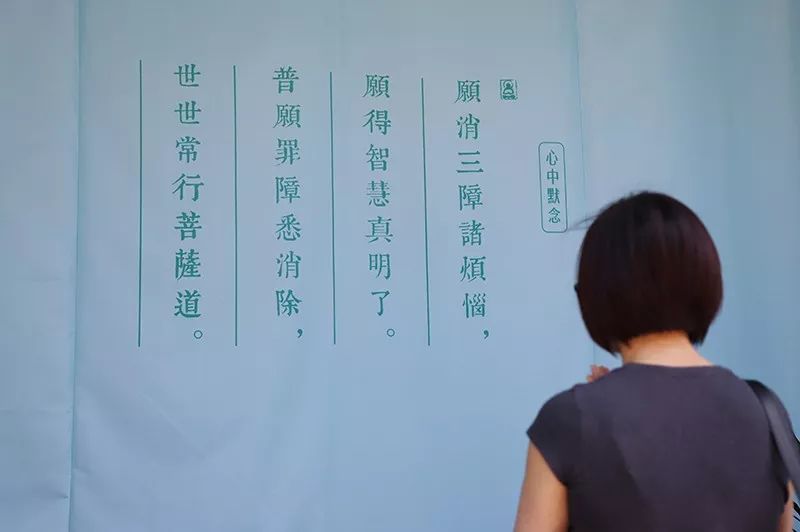 心中默念
願消三障諸煩惱，
願得智慧真明了。
普願罪障悉消除，
世世常行菩薩道。